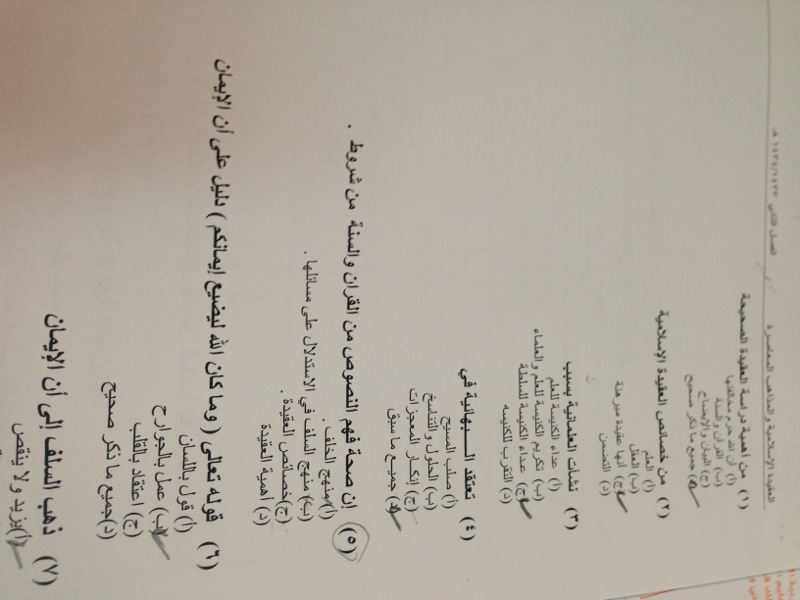 العقيدة الإسلامية و المذاهب المعاصرة
الفصل الثاني
(١) من أهمية دراسة العقيدة الصحيحة
(أ) أن الله حرم مخالفتها
(ب) القرآن والسنة
(ج) البيان والإيضاح
(د) جميع ما ذكر صحيح
(٢) من خصائص العقيدة الإسلامية
(أ) العلم
(ب) العقل
(ج) أنها عقيدة مبرهنة
(د) التضمن
(٣) نشأت العلمانية بسبب
(أ) عداء الكنيسة للعلم
(ب) تكريم الكنيسة للعلم والعلماء
(ج) عداء الكنيسة للسلطة
(د) التقرب للكنيسه
(٤) تعتقد البهائية في
(أ) صلب المسيح
(ب) الحلول و التناسخ
(ج) إنكار المعجزات
(د) جميع ما سبق
(٥) إن صحة فهم النصوص من القران والسنة من شروط .
(أ) منهج الخلف .
(ب) منهج السلف في الاستدلال على مسائلها .
(ج) خصائص العقيدة .
(د) أهمية العقيدة
(٦) قوله تعالى ( وما كان الله ليضيع إيمانكم ) دليل على أن الإيمان
(أ) قول باللسان
(ب) عمل بالجوارح
(ج) اعتقاد بالقلب
(د) جميع ما ذكر صحيح
(٧) ذهب السلف إلى أن الإيمان
(أ) يزيد ولا ينقص